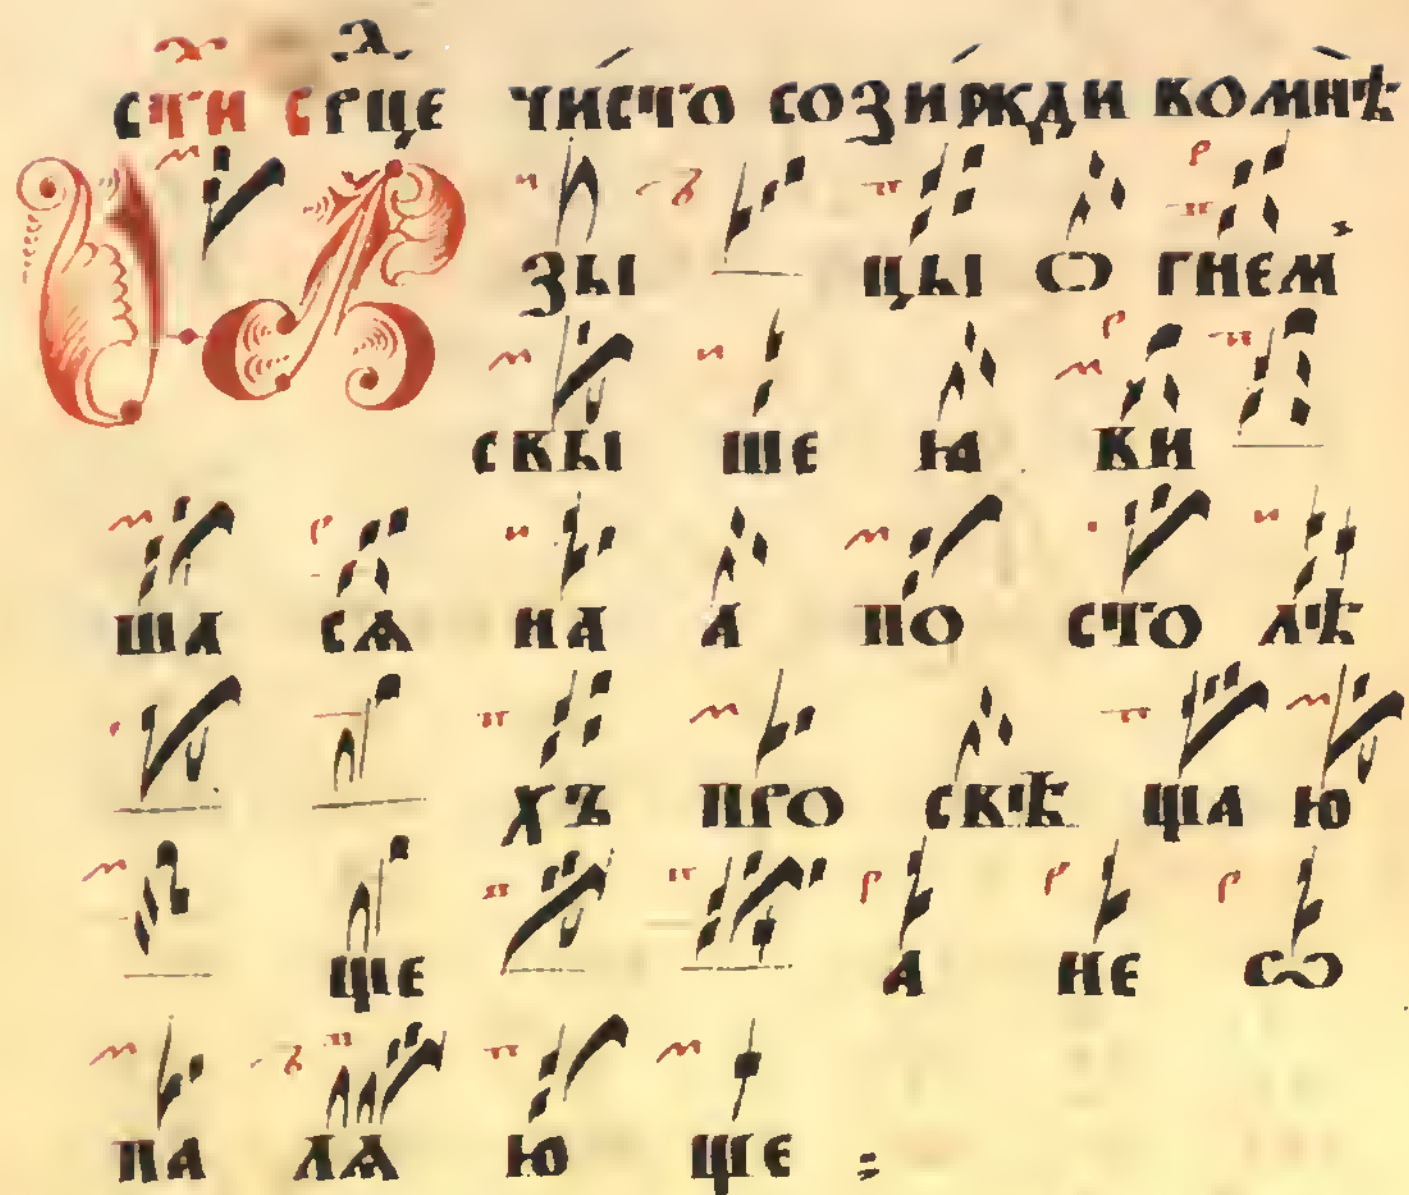 стⷯи срⷣце чи́сто сози́жди вомнѣ̀
Ꙗ зы цы о гнем
свы ше ꙗ ви
ша сѧ на а по сто лѣ
хъ про свѣ ща ю
ще а не ѡ
па лѧ ю ще